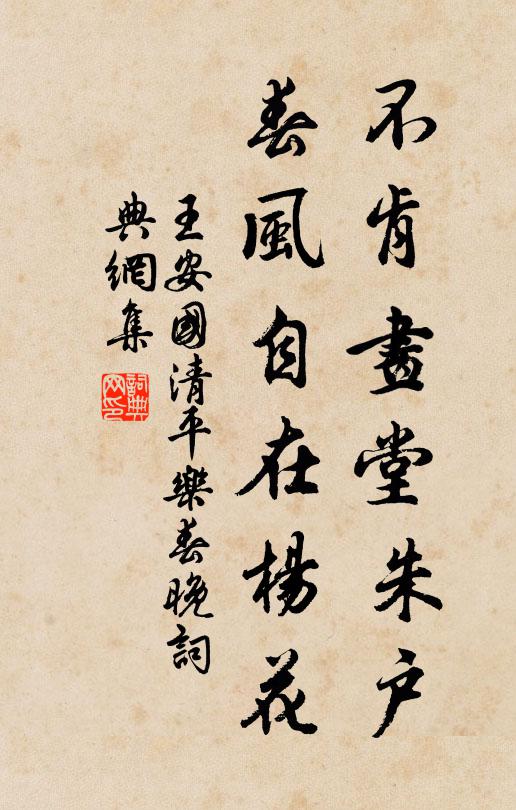 不肯畫堂朱戶
春風自在楊花
王安國清平樂春晚詞
典網集
詞典网印